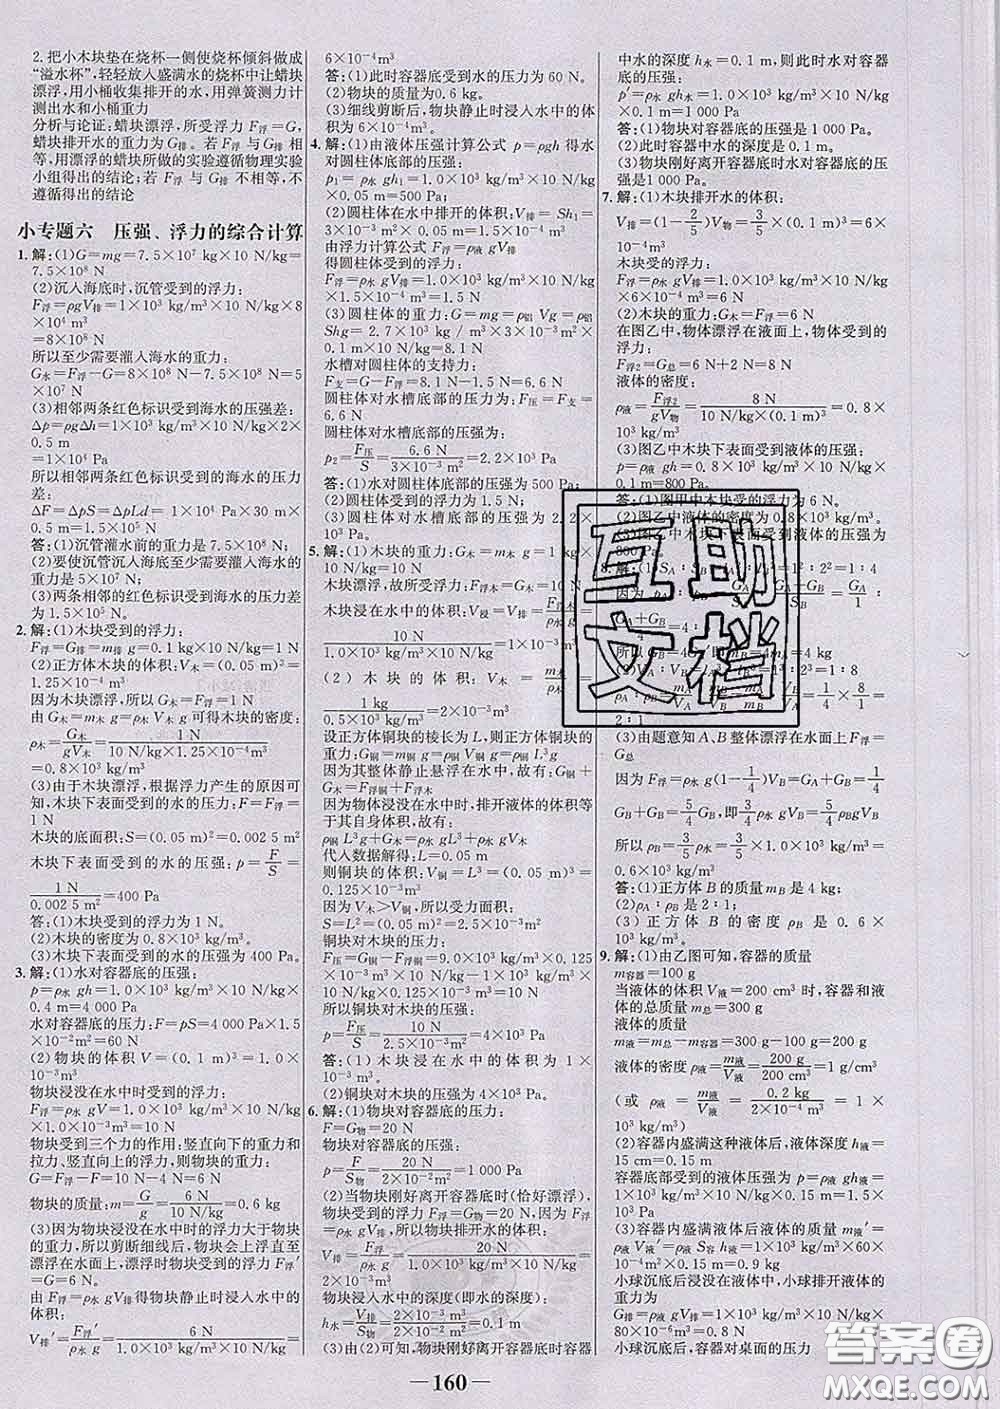 2. 把小木块垫在烧杯一侧使烧杯倾斜做成
“溢水杯”,轻轻放入盛满水的烧杯中让蜡块
漂浮,用小桶收集排开的水,用弹簧测力计
测出水和小桶重力
分析与论证:蜡块漂浮,所受浮力 F浮=G,
蜡块排开水的重力为 G排。若 F浮 与 G排 相
等,用漂浮的蜡块所做的实验遵循物理实验
小组得出的结论;若 F浮 与 G排 不相等,不
遵循得出的结论
小专题六 压强、浮力的综合计算
1. 解:(1)G=mg=7.5×10⁷ kg×10 N/kg=
7.5×10⁸ N
(2)沉入海底时,沉管受到的浮力:
F浮=ρgV排=1×10³ kg/m³×10 N/kg×8
×10⁴ m³
=8×10⁸ N
所以至少需要灌入海水的重力:
G水=F浮-G=8×10⁸ N-7.5×10⁸ N=5
×10⁷ N
(3)相邻两条红色标识受到海水的压强差:
Δp=ρgΔh=1×10³ kg/m³×10 N/kg×2
×0.5 m
=1×10⁴ Pa
所以相邻两条红色标识受到的海水的压力
差:
ΔF=ΔpS=ΔpLd= 1×10⁴ Pa×30 m
×0.5 m=1.5×10⁵ N
答:(1)沉管灌水前的重力是 7.5×10⁸ N;
(2)要使沉管沉入海底至少需要灌入海水
的重力为 5×10⁷ N;
(3)两条相邻的红色标识的海水的压力差
为 1.5×10⁵ N
2. 解:(1)木块受到的浮力:
F浮=G排=m排 g=0.1 kg×10 N/kg=1 N
(2)正方体木块的体积:V木=(0.05 m)³=
1.25×10⁻⁴ m³
因为木块漂浮,所以 G木=F浮=1 N
由 G木=m木 g=ρ木 gV木 可得木块的密度:
ρ木=G木/gV木=1 N/10 N/kg×1.25×10⁻⁴ m³
=0.8×10³ kg/m³
(3)由于木块漂浮,根据浮力产生的原因可
知,木块下表面受到的水的压力:F=F浮=
1 N
木块的底面积:S=(0.05 m)²=0.002 5 m²
木块下表面受到的水的压强:p=F/S=
1 N/0.002 5 m²=400 Pa
答:(1)木块受到的浮力为 1 N。
(2)木块的密度为 0.8×10³ kg/m³。
(3)木块下表面受到水的压强为 400 Pa。
3. 解:(1)水对容器底的压强:
p=ρ水 gh=1.0×10³ kg/m³×10 N/kg×
0.4 m=4 000 Pa
水对容器底的压力:F=pS=4 000 Pa×1.5
×10⁻² m²=60 N
(2)物块的体积 V=(0.1 m)³=1.0×
10⁻³m³
物块浸没在水中时受到的浮力:
F浮=ρ水 gV=1.0×10³ kg/m³×10 N/kg
×1.0×10⁻³ m³=10 N
物块受到三个力的作用:竖直向下的重力和
拉力、竖直向上的浮力,则物块的重力:
G=F浮-F拉=10 N-4 N=6 N
物块的质量:m=G/g=6 N/10 N/kg=0.6 kg
(3)因为物块浸没在水中时的浮力大于物块
的重力,所以剪断细线后,物块会上浮直至
漂浮在水面上,漂浮时物块的浮力 F浮′
=G=6 N
由 F浮=ρ水 gV排 得物块静止时浸入水中的
体积:
V排′=F浮′/ρ水 g=6 N/1.0×10³ kg/m³×10 N/kg=
6×10⁻⁴m³
答:(1)此时容器底受到水的压力为 60 N。
(2)物块的质量为0.6 kg。
(3)细线剪断后,物块静止时浸入水中的体
积为 6×10⁻⁴m³。
4. 解:(1)由液体压强计算公式 p=ρgh 得水
对圆柱体底部的压强:
p₁=ρ水 gh₁=1.0×10³ kg/m³×10 N/kg
×0.05 m=500 Pa
(2)圆柱体在水中排开的体积:V排=Sh₁=
3×10⁻³ m²×0.05 m=1.5×10⁻⁴ m³
由浮力计算公式 F浮=ρ液 gV排
得圆柱体受到的浮力:
F浮=ρ水 gV排=1.0×10³ kg/m³×10 N/kg
×1.5×10⁻⁴ m³=1.5 N
(3)圆柱体的重力:G=mg=ρ铝 Vg=ρ铝
Shg=2.7×10³ kg/m³×3×10⁻³ m²×
0.10 m×10 N/kg=8.1 N
水槽对圆柱体的支持力:
F支=G-F浮=8.1 N-1.5 N=6.6 N
圆柱体对水槽底部的压力:F压=F支=
6.6 N
圆柱体对水槽底部的压强为:
p₂=F压/S=6.6 N/3×10⁻³ m²=2.2×10³ Pa
答:(1)水对圆柱体底部的压强为 500 Pa;
(2)圆柱体受到的浮力为 1.5 N;
(3)圆柱体对水槽底部的压强为 2.2×
10³ Pa
5. 解:(1)木块的重力:G木=m木 g=1 kg
×10 N/kg=10 N
木块漂浮,故所受浮力:F浮木=G木=10 N
木块浸在水中的体积:V浸=V排=F浮木/ρ水 g=
10 N/1.0×10³ kg/m³×10 N/kg=1×10⁻³
(2)木块的体积:V木=
1 kg/0.5×10³ kg/m³=2×10⁻³m³
设正方体铜块的棱长为 L,则正方体铜块的
重力:G铜=m铜 g=ρ铜 gV铜=ρ铜 L³g
因为其整体静止悬浮在水中,故有:G铜+
G木=F浮铜+F浮木
因为物体浸没在水中时,排开液体的体积等
于其自身体积,故有:
ρ铜 L³g+G木=ρ水 gL³+ρ水 gV木
代入数据解得:L=0.05 m
则铜块的体积:V铜=L³=(0.05 m)³=
0.125×10⁻³m³
因为 V木>V铜,所以受力面积:
S=L²=(0.05 m)²=2.5×10⁻³m²
铜块对木块的压力:
F压=G铜-F浮铜=9.0×10³ kg/m³×0.125
×10⁻³m³×10 N/kg-1.0×10³ kg/m³
×10 N/kg×0.125×10⁻³ m³=10 N
所以铜块对木块的压强:
p=F压/S=10 N/2.5×10⁻³m²=4×10³ Pa
答:(1)木块浸在水中的体积为 1×
10⁻³ m³。
(2)铜块对木块的压强为 4×10³ Pa。
6. 解:(1)物块对容器底的压力:
F=G物=20 N
物块对容器底的压强:
p=F/S=20 N/2×10⁻²m²=1 000 Pa
(2)当物块刚好离开容器底时(恰好漂浮),
物块受到的浮力 F浮=G物=20 N,
由 F浮=ρ水 gV排得,物块排开水的体积:
V排=F浮/ρ水 g=20 N/1.0×10³ kg/m³×10 N/kg=
2×10⁻³ m³
物块浸入水中的深度(即水的深度):
h水=V排/S物=2×10⁻³ m³/2×10⁻² m²=0.1 m
(3)由(2)可知,物块刚好离开容器底时容器
中水的深度 h水=0.1 m,则此时水对容器
底的压强:
p′=ρ水 gh水=1.0×10³ kg/m³×10 N/kg
×0.1 m=1 000 Pa
答:(1)物块对容器底的压强是 1 000 Pa。
(2)此时容器中水的深度是 0.1 m。
(3)物块刚好离开容器底时,水对容器底的
压强是 1 000 Pa。
7. 解:(1)木块排开水的体积:
V排=(1-2/5)V物=3/5×(0.1 m)³=
6×10⁻⁴ m³
木块受的浮力:
F浮=ρ水 gV排=1.0×10³ kg/m³×10 N/kg
×6×10⁻⁴ m³=6 N
(2)木块的重力:G物=F浮=6 N
在图乙中,物体漂浮在液面上,物体受到的
浮力:
F浮2=G总=6 N+2 N=8 N
液体的密度:
ρ液=F浮2/gV物=8 N/10 N/kg×(0.1 m)³=0.8×
10³ kg/m³
(3)图乙中木块下表面受到液体的压强:
p=ρ液 gh=0.8×10³ kg/m³×10 N/kg×
0.1 m=800 Pa
答:(1)图甲中木块受的浮力为 6 N。
(2)图乙中液体的密度为0.8×10³ kg/m³。
(3)图乙中木块下表面受到液体的压强为
800 Pa。
(3)由题意知A、B整体漂浮在水面上F浮=
G总
因为 F浮=ρ水 g(1-1/4)VB=GA+GB=1/4
GB+GB=5/4GB,即3/4ρ水 gVB=5/4ρBgVB
所以 ρB=3/5ρ水=3/5×1.0×10³ kg/m³=
0.6×10³ kg/m³
答:(1)正方体 B 的质量 mB 是 4 kg;
(2)ρA:ρB 是 2:1;
(3)正方体 B 的密度 ρB 是 0.6×
10³ kg/m³
9. 解:(1)由乙图可知,容器的质量
m容器=100 g
当液体的体积 V液=200 cm³ 时,容器和液
体的总质量 m总=300 g
液体的质量
m液=m总-m容器=300 g-100 g=200 g
液体的密度 ρ液=m液/V液=200 g/200 cm³=1 g/cm³
(或 ρ液=m液/V液=0.2 kg/2×10⁻⁴ m³=1×
10³ kg/m³)
(2)容器内盛满这种液体后,液体深度 h液=
15 cm=0.15 m
容器底部受到的液体压强为 p液=ρ液 gh液=
1×10³ kg/m³×10 N/kg×0.15 m=1.5×
10³ Pa
(3)容器内盛满液体后液体的质量 m液′=
ρ液 V液=ρ液 S容 h液=1×10³ kg/m³
m²×0.15 m=0.9 kg
小球沉底后浸没在液体中,小球排开液体的
重力
G排=ρ液 gV排=1×10³ kg/m³×10 N/kg×
80×10⁻⁶ m³=0.8 N
小球沉底后,容器对桌面的压力
— 160 —
互助
文档
答案圈
MXQE.COM